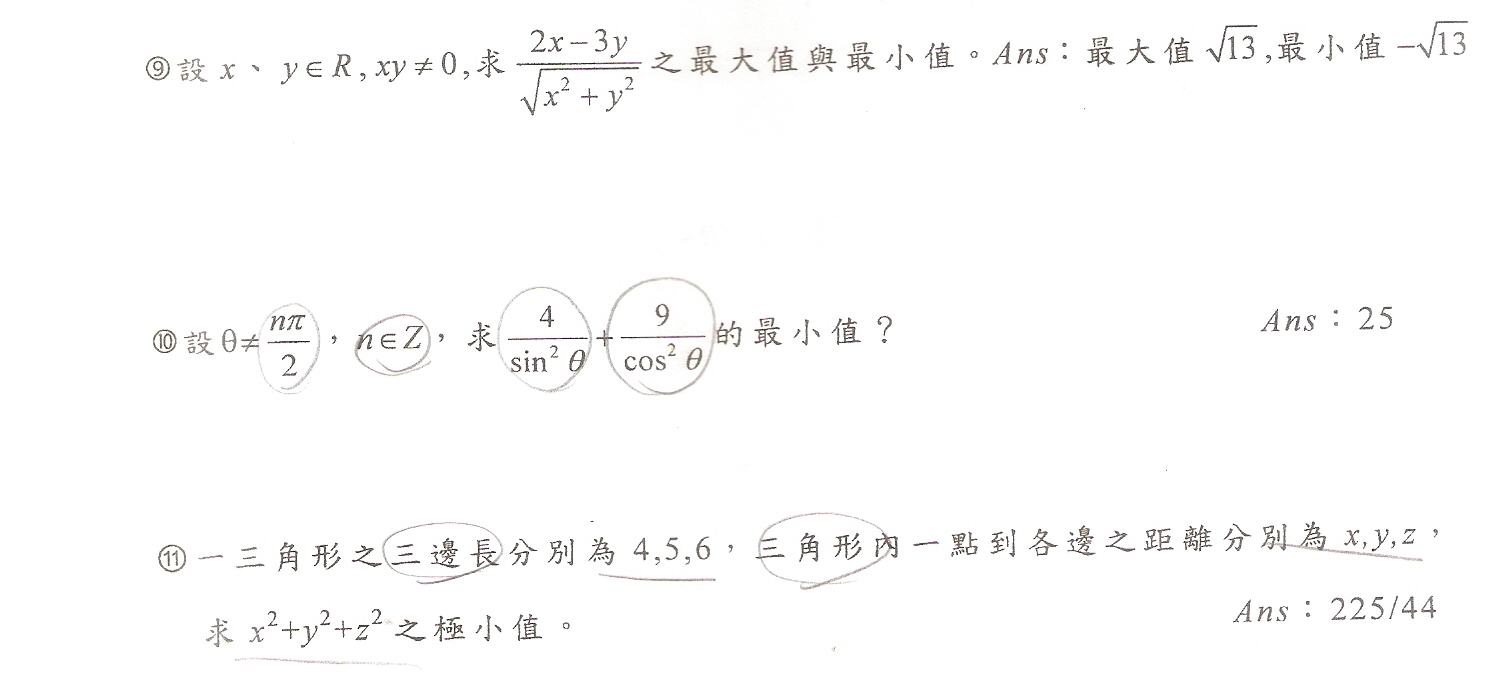 ⑨設 x、y∈R, xy≠0,求 \frac{2x-3y}{\sqrt{x^2+y^2}} 之最大值與最小值。Ans：最大值 √13,最小值 -√13
⑩設θ≠\frac{nπ}{2}，n∈Z，求 \frac{4}{\sin^2 θ}+\frac{9}{\cos^2 θ} 的最小值？ Ans：25
⑪一三角形之三邊長分別為 4,5,6，三角形內一點到各邊之距離分別為 x,y,z，
求 x²+y²+z² 之極小值。 Ans：225/44